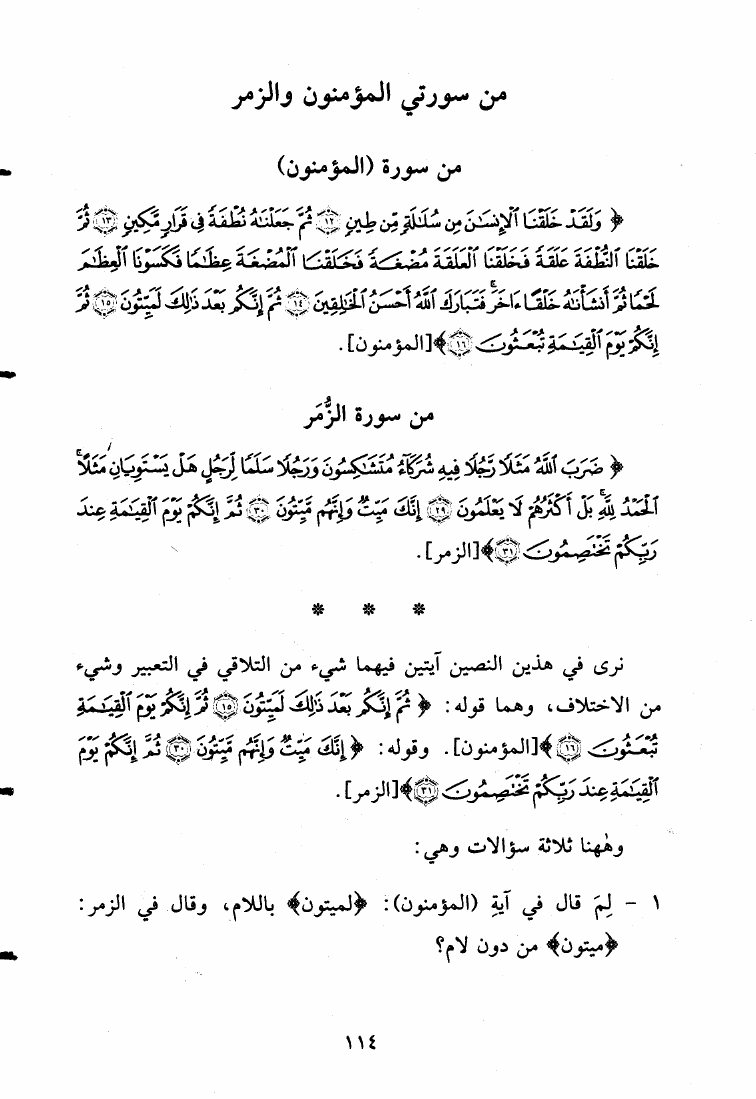 من سورتي المؤمنون والزمر
من سورة (المؤمنون)
﴿ وَلَقَدْ خَلَقْنَا ٱلْإِنسَٰنَ مِن سُلَٰلَةٍ مِّن طِينٍ ١٢ ثُمَّ جَعَلْنَٰهُ نُطْفَةً فِى قَرَارٍ مَّكِينٍ ١٣ ثُمَّ
خَلَقْنَا ٱلنُّطْفَةَ عَلَقَةً فَخَلَقْنَا ٱلْعَلَقَةَ مُضْغَةً فَخَلَقْنَا ٱلْمُضْغَةَ عِظَٰمًا فَكَسَوْنَا ٱلْعِظَٰمَ
لَحْمًا ثُمَّ أَنشَأْنَٰهُ خَلْقًا ءَاخَرَ ۚ فَتَبَارَكَ ٱللَّهُ أَحْسَنُ ٱلْخَٰلِقِينَ ١٤ ثُمَّ إِنَّكُم بَعْدَ ذَٰلِكَ لَمَيِّتُونَ ١٥ ثُمَّ
إِنَّكُمْ يَوْمَ ٱلْقِيَٰمَةِ تُبْعَثُونَ ١٦ ﴾ [المؤمنون].
من سورة الزُّمَر
﴿ ضَرَبَ ٱللَّهُ مَثَلًا رَّجُلًا فِيهِ شُرَكَآءُ مُتَشَٰكِسُونَ وَرَجُلًا سَلَمًا لِّرَجُلٍ هَلْ يَسْتَوِيَانِ مَثَلًا ۚ
ٱلْحَمْدُ لِلَّهِ ۚ بَلْ أَكْثَرُهُمْ لَا يَعْلَمُونَ ٢٩ إِنَّكَ مَيِّتٌ وَإِنَّهُم مَّيِّتُونَ ٣٠ ثُمَّ إِنَّكُمْ يَوْمَ ٱلْقِيَٰمَةِ عِندَ
رَبِّكُمْ تَخْتَصِمُونَ ٣١ ﴾ [الزمر].
* * *
نرى في هذين النصين آيتين فيهما شيء من التلاقي في التعبير وشيء
من الاختلاف، وهما قوله: ﴿ ثُمَّ إِنَّكُم بَعْدَ ذَٰلِكَ لَمَيِّتُونَ ١٥ ثُمَّ إِنَّكُمْ يَوْمَ ٱلْقِيَٰمَةِ
تُبْعَثُونَ ١٦ ﴾ [المؤمنون]. وقوله: ﴿ إِنَّكَ مَيِّتٌ وَإِنَّهُم مَّيِّتُونَ ٣٠ ثُمَّ إِنَّكُمْ يَوْمَ
ٱلْقِيَٰمَةِ عِندَ رَبِّكُمْ تَخْتَصِمُونَ ٣١ ﴾ [الزمر].
وهٰهنا ثلاثة سؤالات وهي:
١ - لِمَ قال في آيةِ (المؤمنون): ﴿لميتون﴾ باللام، وقال في الزمر:
﴿ميتون﴾ من دون لام؟
١١٤